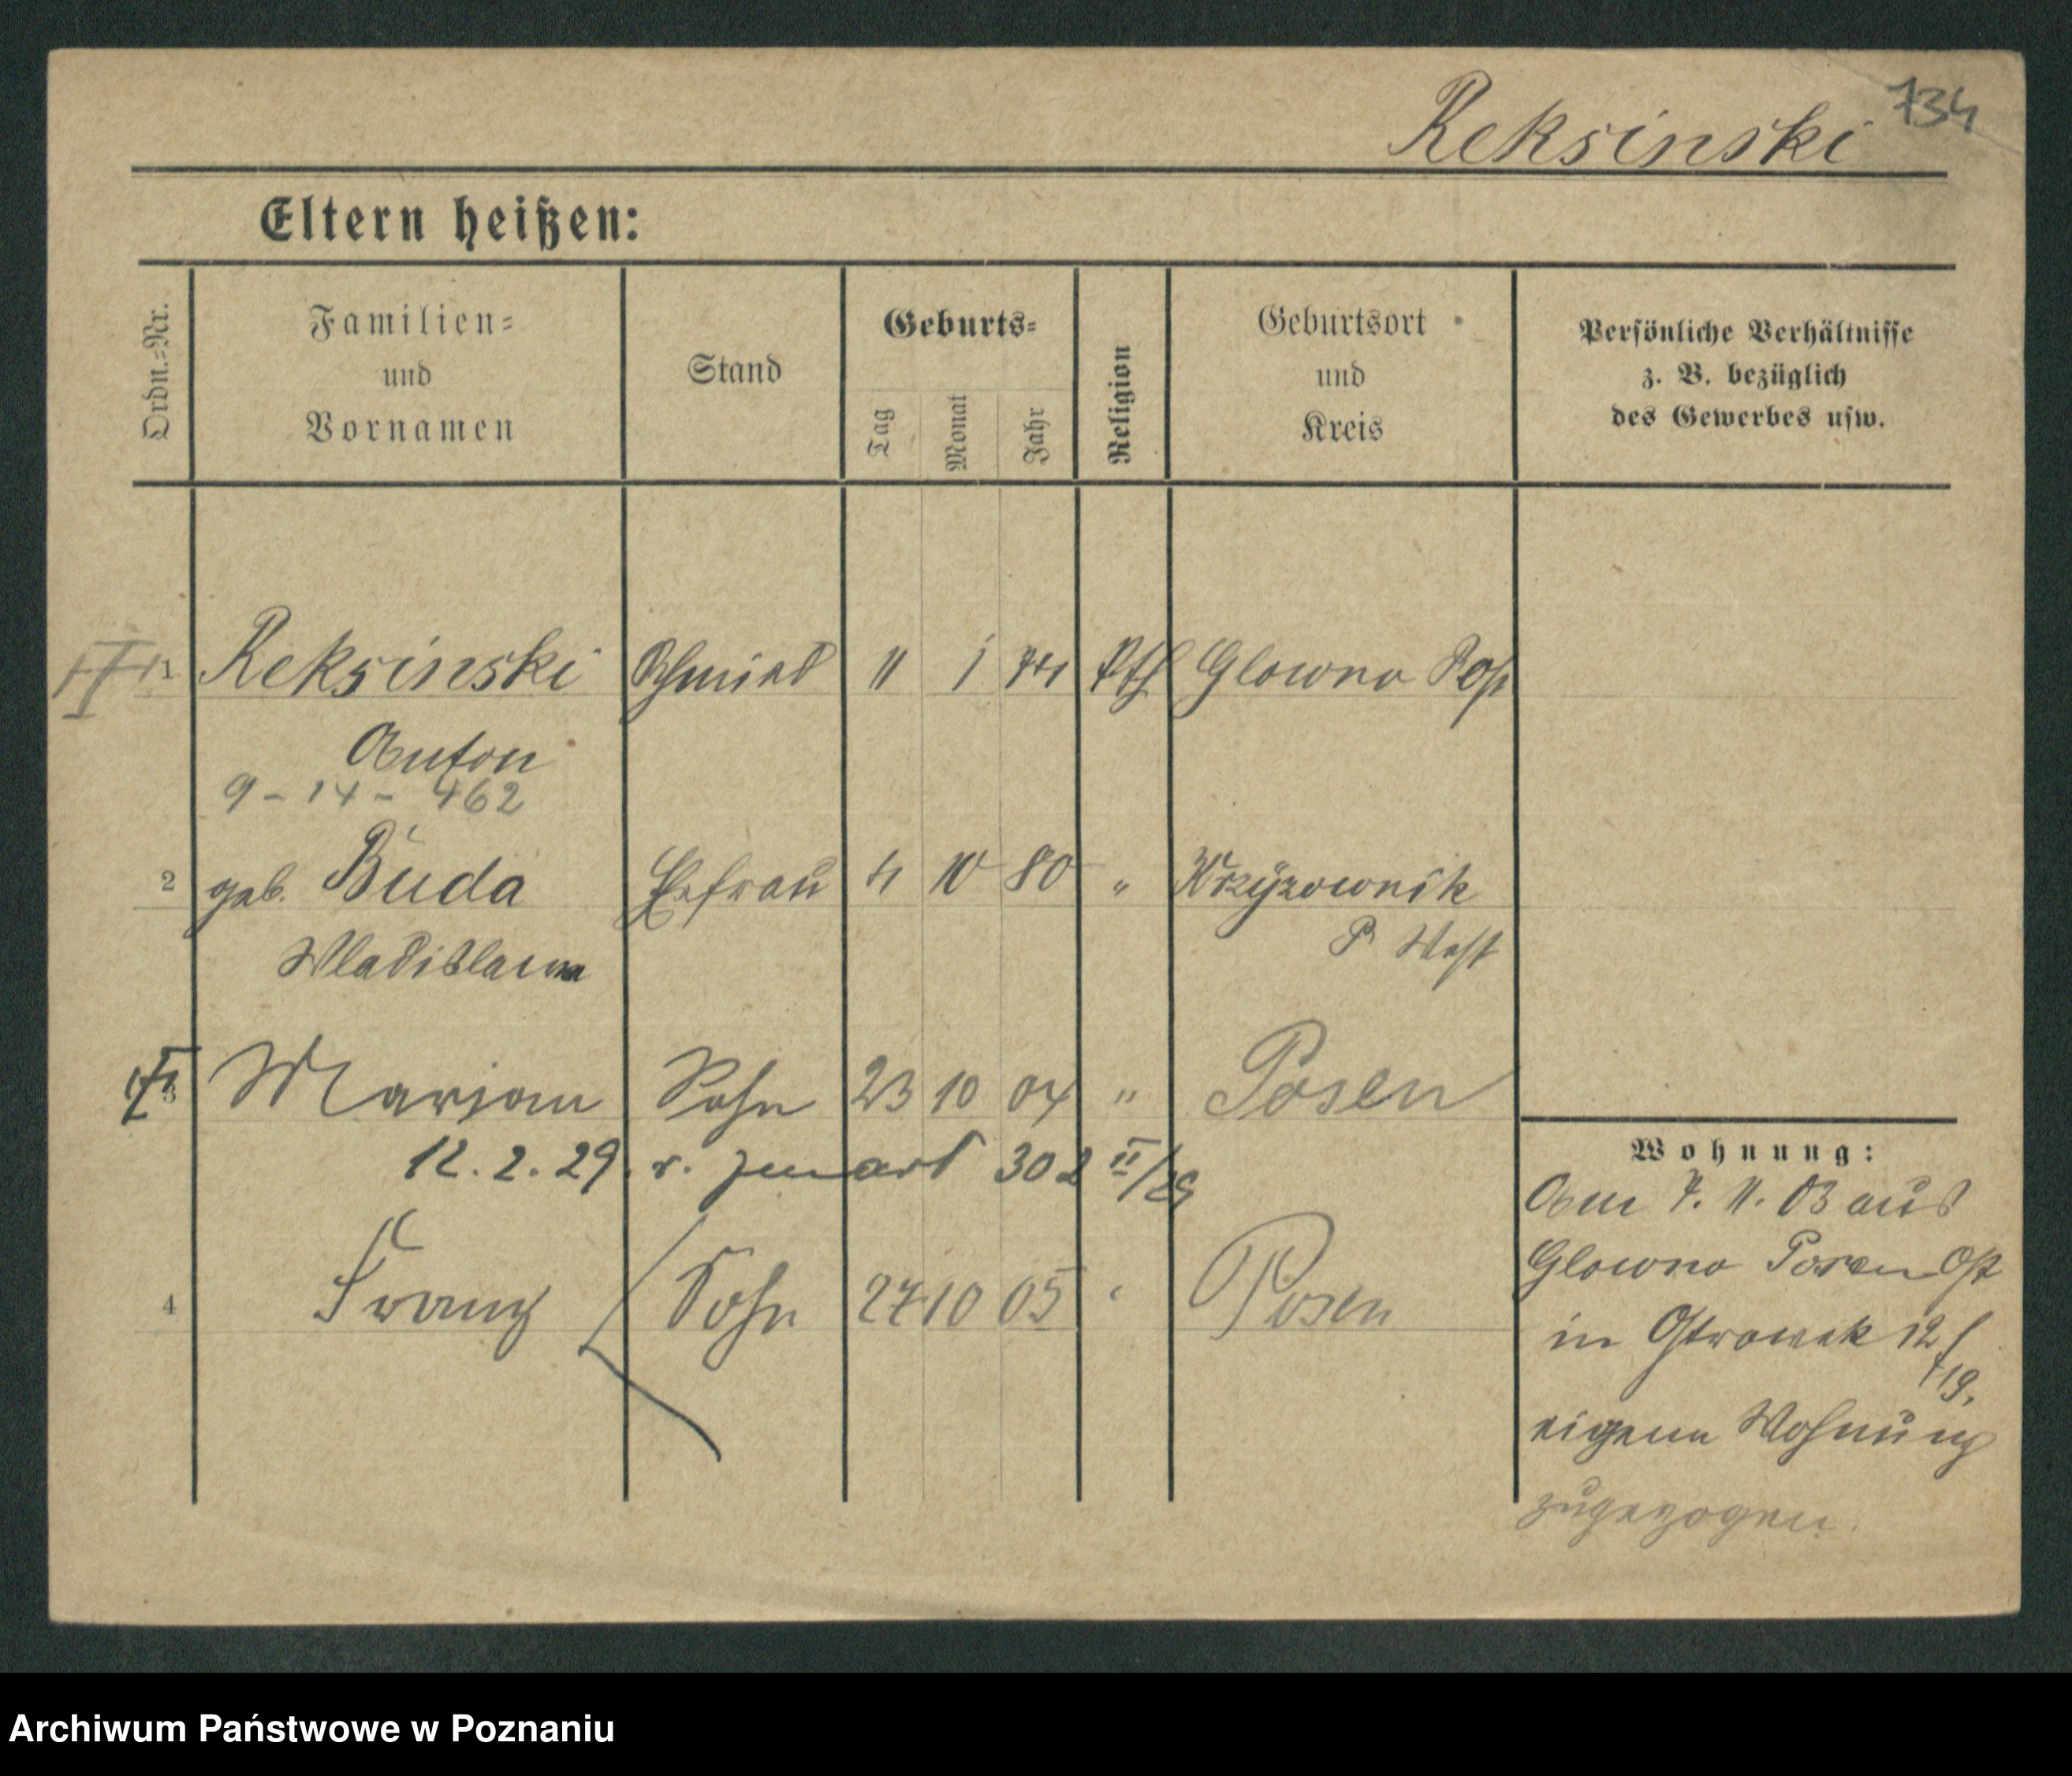 734
Reksinski
Eltern heißen:
Ordn.-Nr.
Familien-
und
Vornamen
Stand
Geburts-
Tag
Monat
Jahr
Religion
Geburtsort
und
Kreis
Persönliche Verhältnisse
z. B. bezüglich
des Gewerbes usw.
1 Reksinski Schmied 11 1 74 kth Glowno Pos
Anton
9-14-462
2 geb. Buda Ehefrau 4 10 80 " Krzyzownik
Wladislawa P West
3 Marjan Sohn 23 10 04 " Posen
12.2.29. r. 302 II/29
4 Franz Sohn 27 10 05 " Posen
Wohnung:
Am 7. 11. 03 aus
Glowno Posen Ost
in Ostrowek 12/
19.
eigene Wohnung
zugezogen.
Archiwum Państwowe w Poznaniu